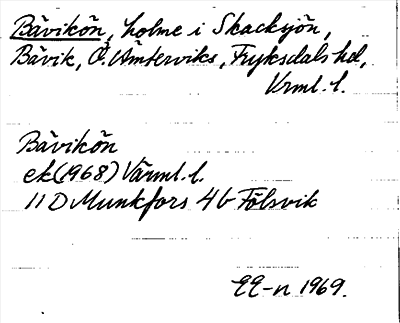 Bävikön, holme i Skacksjön,
Bävik, Ö. Ämterviks, Fryksdals hd,
Vrml. l.
Bävikön
ek (1968) Värml. l.
11 D Munkfors 4b Fölsvik
EE-n 1969.